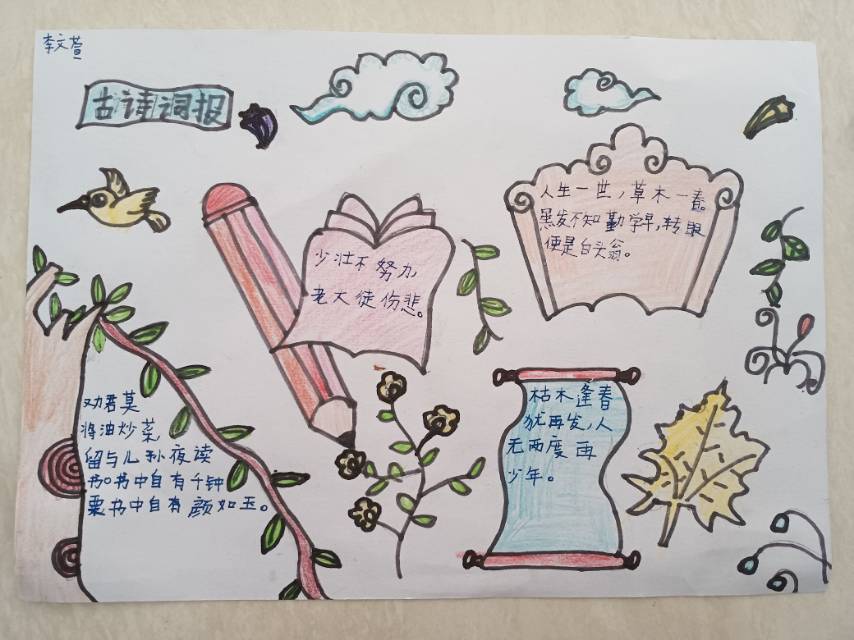 李文萱
古诗词报
人生一世，草木一春。
黑发不知勤学早，转眼
便是白头翁。
少壮不努力
老大徒伤悲。
劝君莫
将油炒菜
留与儿孙夜读
书。书中自有千钟
粟书中自有颜如玉。
枯木逢春
犹再发，人
无两度再
少年。